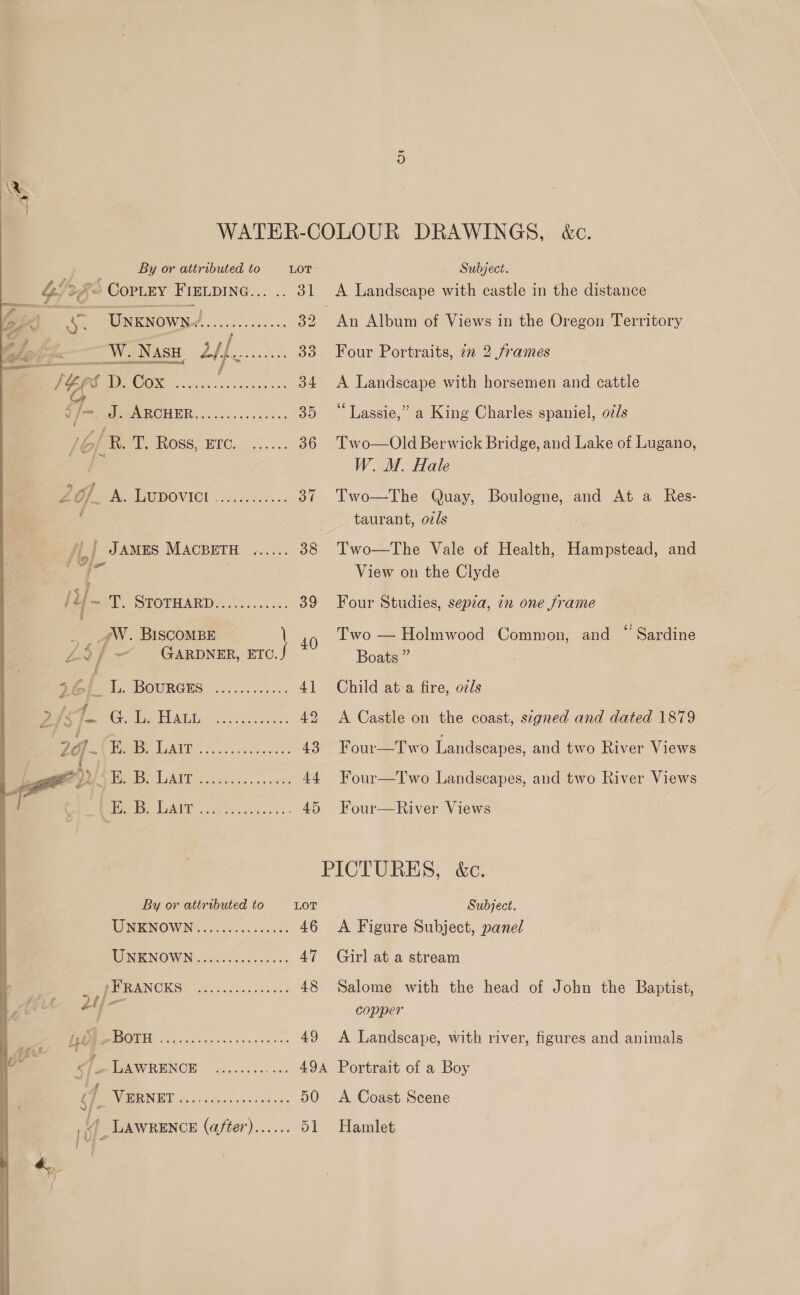 5
WATER-COLOUR DRAWINGS, &c.
By or attributed to LOT Subject.
COPLEY FIELDING... .. 31 A Landscape with castle in the distance
UNKNOWN.............. 32 An Album of Views in the Oregon Territory
W. NASH ........ 33 Four Portraits, in 2 frames
D. COX .................. 34 A Landscape with horsemen and cattle
5/- J. ARCHER.............. 35 “Lassie,” a King Charles spaniel, oils
16/ R. T. ROSS, ETC. ...... 36 Two—Old Berwick Bridge, and Lake of Lugano,
W. M. Hale
20/- A. LUDOVICI ............ 37 Two—The Quay, Boulogne, and At a Res-
taurant, oils
JAMES MACBETH ...... 38 Two—The Vale of Health, Hampstead, and
View on the Clyde
14/- T. STOTHARD............ 39 Four Studies, sepia, in one frame
W. BISCOMBE } 40 Two — Holmwood Common, and “Sardine
GARDNER, ETC. Boats”
L. BOURGES ............ 41 Child at a fire, oils
G. L. HALL ............ 42 A Castle on the coast, signed and dated 1879
20/- E. B. LAIT ............... 43 Four—Two Landscapes, and two River Views
E. B. LAIT ............... 44 Four—Two Landscapes, and two River Views
E. B. LAIT ............... 45 Four—River Views
PICTURES, &c.
By or attributed to LOT Subject.
UNKNOWN............... 46 A Figure Subject, panel
UNKNOWN............... 47 Girl at a stream
FRANCKS ............... 48 Salome with the head of John the Baptist,
21/- copper
BOTH ..................... 49 A Landscape, with river, figures and animals
LAWRENCE ............ 49A Portrait of a Boy
VERNET .................. 50 A Coast Scene
LAWRENCE (after)...... 51 Hamlet